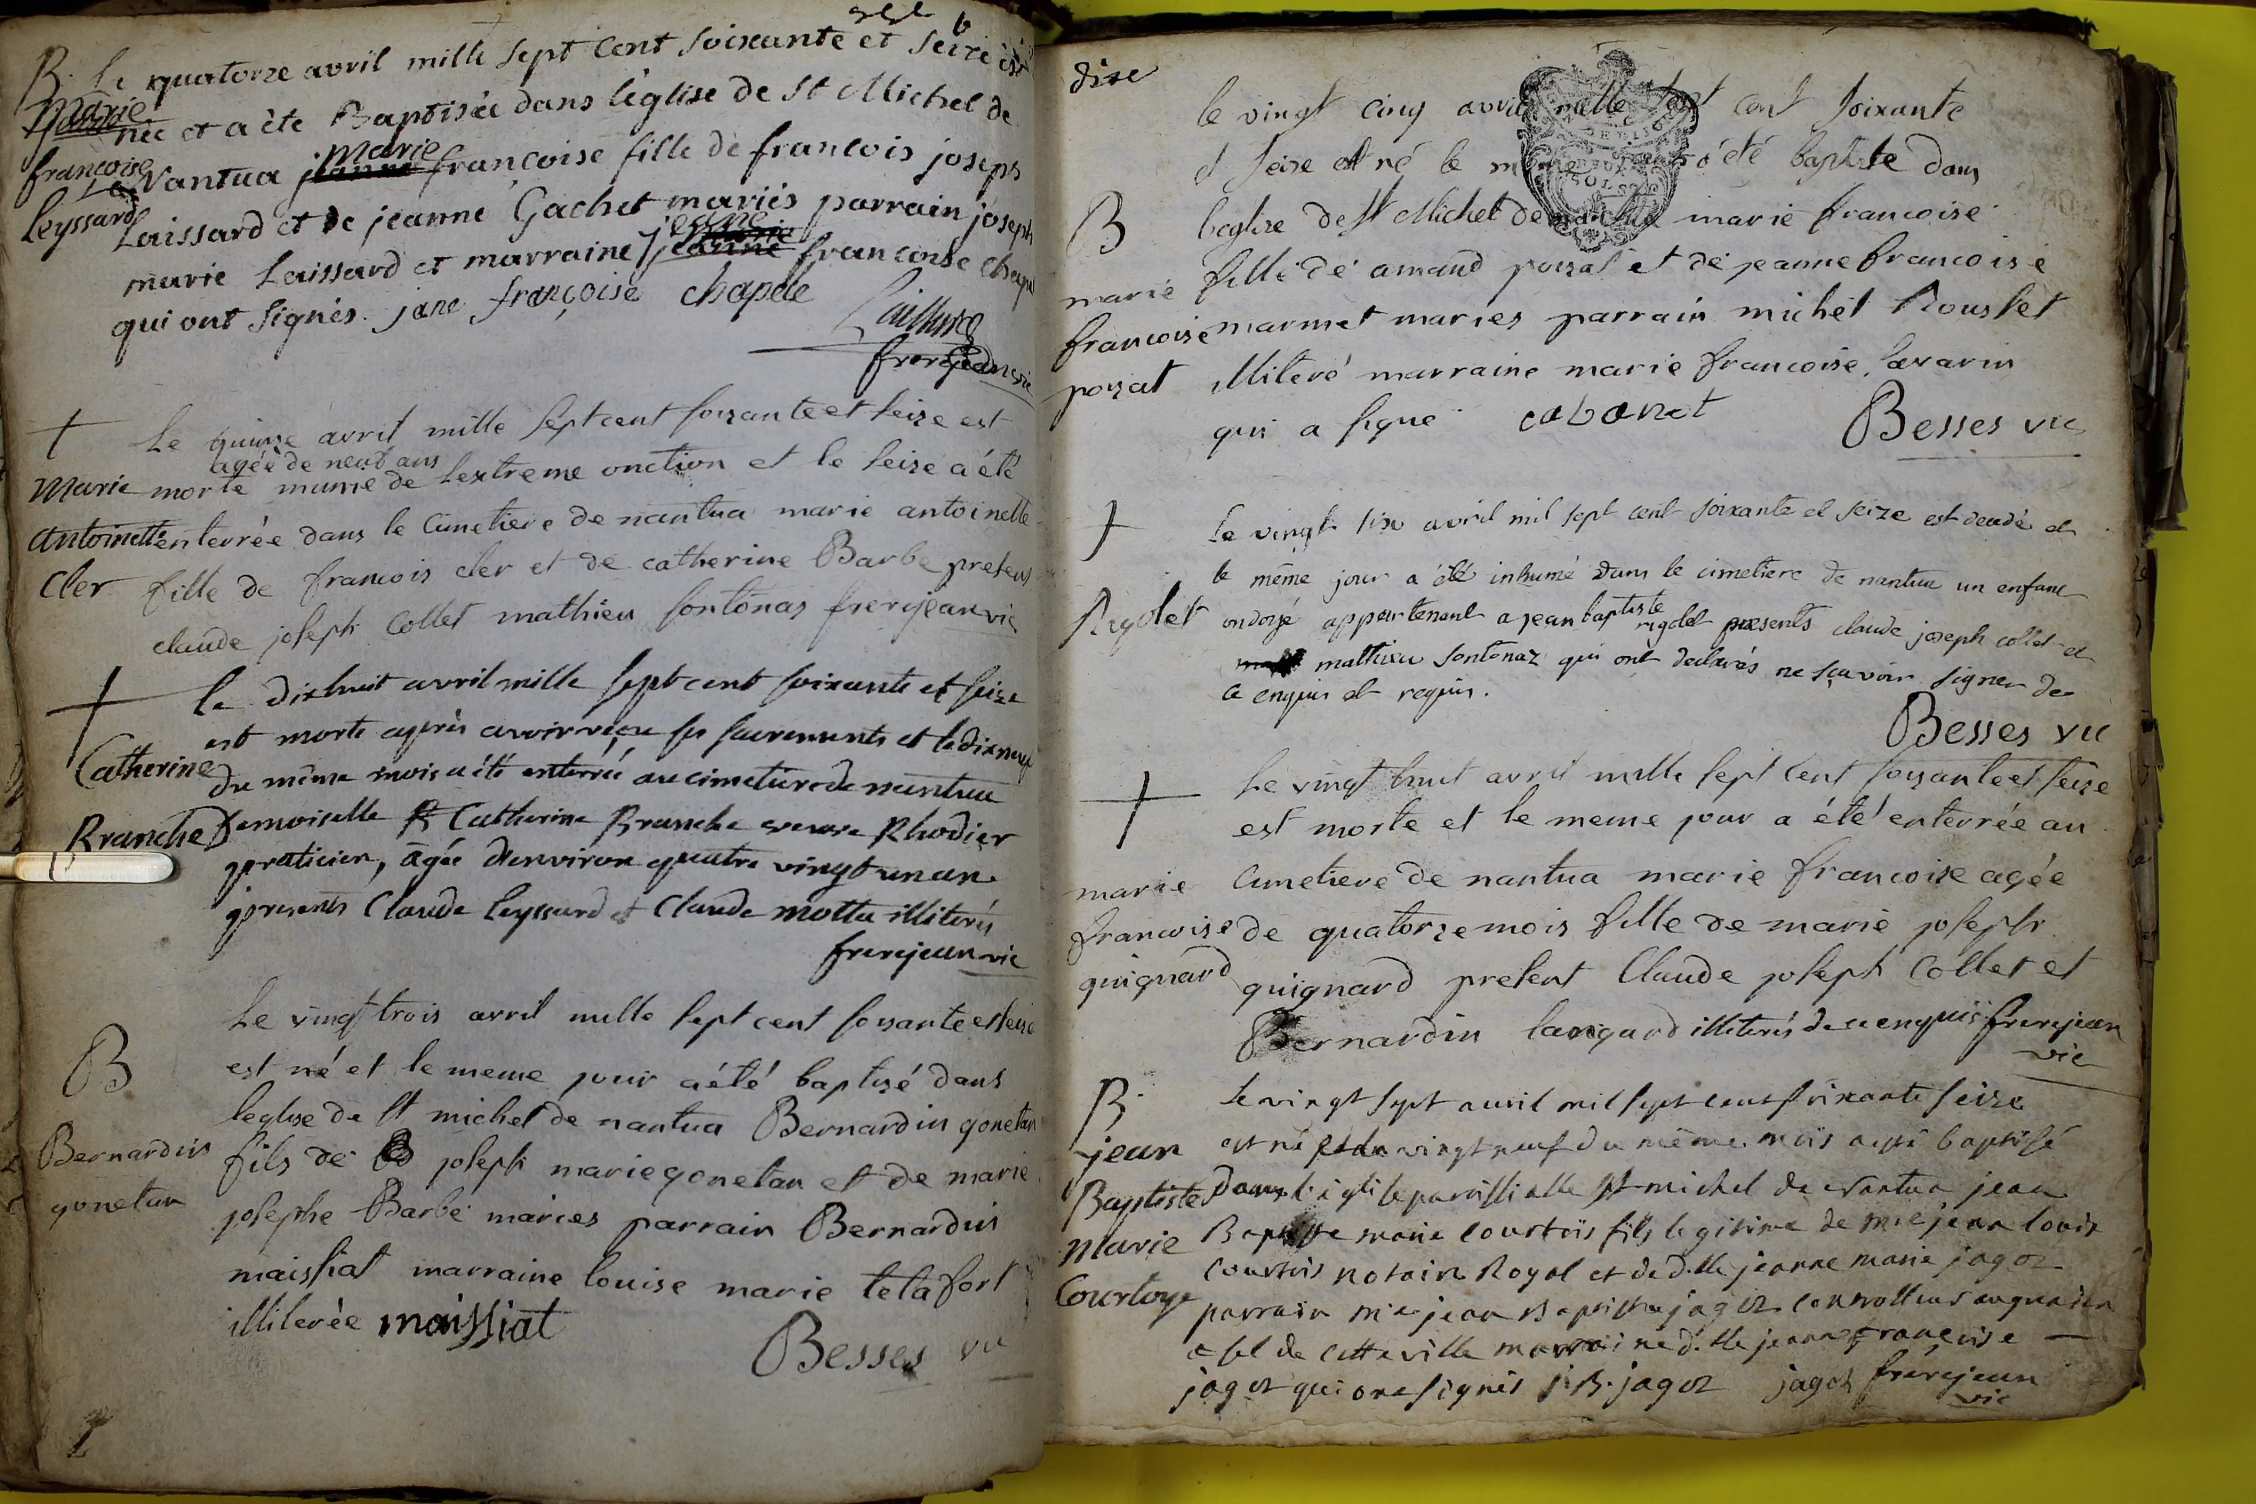 B. Le quatorze avril mille sept cent soixante et seize est
marie
née et a ète Baptisée dans l'église de St Michel de
françoise
marie
Nantua jeanne francoise fille de francois joseph
Leyssard
Laissard et de jeanne Gachet mariés parrain joseph
jeane
marie Laissard et marraine jeanne francoise chapel
qui ont signés. jane françoise chapele
frerejean vic
+ Le quinze avril mille sept cent soixante et seize est
agée de neuf ans
Marie morte munie de lextreme onction et le seize a été
antoinette enterrée dans le Cimetiere de nantua marie antoinette
Cler fille de francois cler et de catherine Barbe presens
claude joseph Collet mathieu sontonas frerejean vic
+ Le dixhuit avril mille sept cent soixante et seize
est morte après avoir reçu ses sacrements et le dixneuf
Catherine du même mois a été enterrée au cimetiere de nantua
Branche Demoiselle Catherine Branche veuve Rhodier
praticien, âgée d'environ quatre vingt un an
presents Claude Leyssard et Claude motta illiterés
frerejean vic
Le vingt trois avril mille sept cent soixante et seize
B est né et le meme jour a été baptisé dans
leglise de St michel de nantua Bernardin gonetan
Bernardin fils de joseph marie gonetan et de marie
gonetan josephe Barbe maries parrain Bernardin
maissiat marraine louise marie tetafort
illiterée maissiat
Besses vic
dixe
le vingt cinq avril mille sept cent soixante
et seize est né le meme jour a été baptiste dans
B leglise de St Michel de nantua marie francoise
marie fille de amand poizat et de jeanne francoise
francoise marmet maries parrain michel Rousset
poizat illiteré marraine marie francoise Lavarin
qui a signé cabanet Besses vic
+ Le vingt six avril mil sept cent soixante et seize est decedé et
le même jour a été inhumé dans le cimetiere de nantua un enfant
Rigolet ondoyé appartenant a jean baptiste rigolet presents claude joseph collet et
mathieu sontonaz qui ont declarés ne sçavoir signer de
ce enquis et requis.
Besses vic
+ Le vingt huit avril mille sept cent soixante et seize
est morte et le meme jour a été enterrée au
marie Cimetiere de nantua marie francoise agée
francoise de quatorze mois fille de marie joseph
guignard guignard present Claude joseph Collet et
Bernardin illiterés de ce enquis frerejean
vic
B. Le vingt sept avril mil sept cent soixante seize
jean est né et le vingt neuf du même mois a été baptisé
Baptiste dans l'église paroissialle St michel de Nantua jean
Marie Baptiste marie courtois fils legitime de me jean louis
Courtoys courtois notaire Royal et de d.lle jeanne marie jagot
parrain me jean Baptiste jagot controlleur au grenier
a sel de cette ville marraine d.lle jeanne francoise
jagot qui ont signés j. B. jagot jagot frerejean
vic